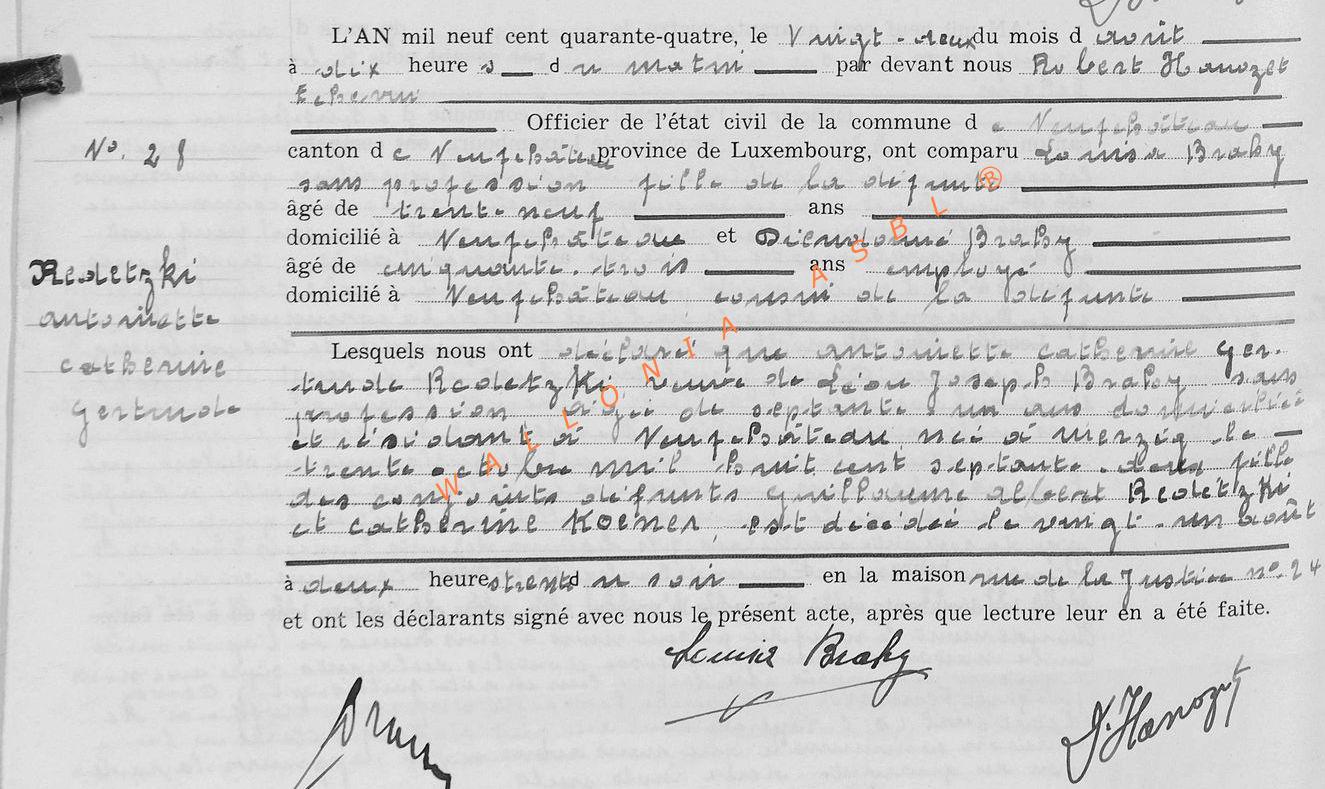 L'AN mil neuf cent quarante-quatre, le Vingt-deux du mois d août
à dix heure s d u matin par devant nous Robert Hanozet
Echevin
Officier de l'état civil de la commune d e Neufchâteau
No. 28
canton d e Neufchâteau province de Luxembourg, ont comparu Louisa Braky
sans profession fille de la défunte
âgé de trente-neuf ans
domicilié à Neufchâteau et Dieudonné Braky
âgé de cinquante-trois ans employé
domicilié à Neufchâteau cousin de la défunte
Redetzki
antoinette
catherine
Gertrude
Lesquels nous ont déclaré que antoinette catherine Ger-
trude Redetzki veuve de Léon Joseph Braky sans
profession âgée de septante-un ans domiciliée
et résidant à Neufchâteau née à Merzig le
trente octobre mil huit cent septante-deux fille
des conjoints défunts Guillaume albert Redetzki
et catherine Koener est décédée le vingt-un août
à deux heures trente d u soir en la maison rue de la Justice no. 24
et ont les déclarants signé avec nous le présent acte, après que lecture leur en a été faite.
Louisa Braky
R. Hanozet
WALLONIA ASBL ®